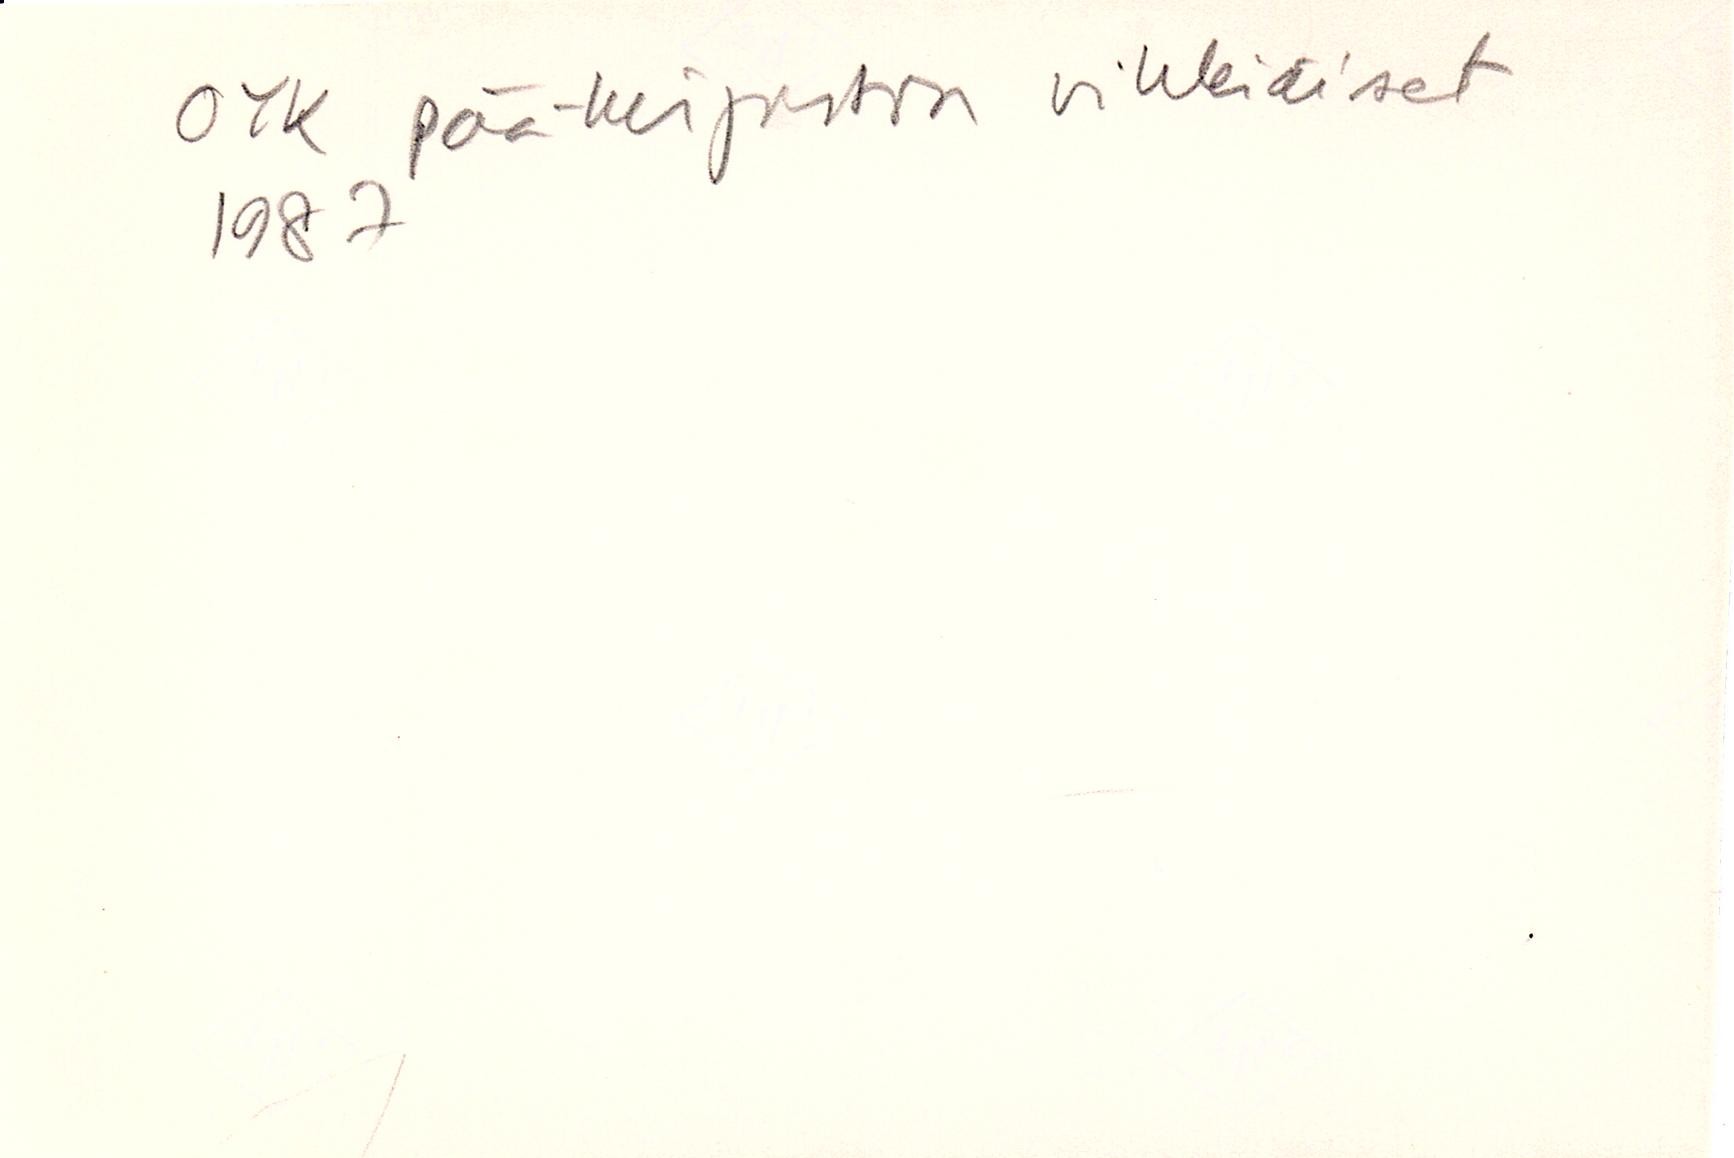 OYK pää-kirjaston vihkiäiset
1987